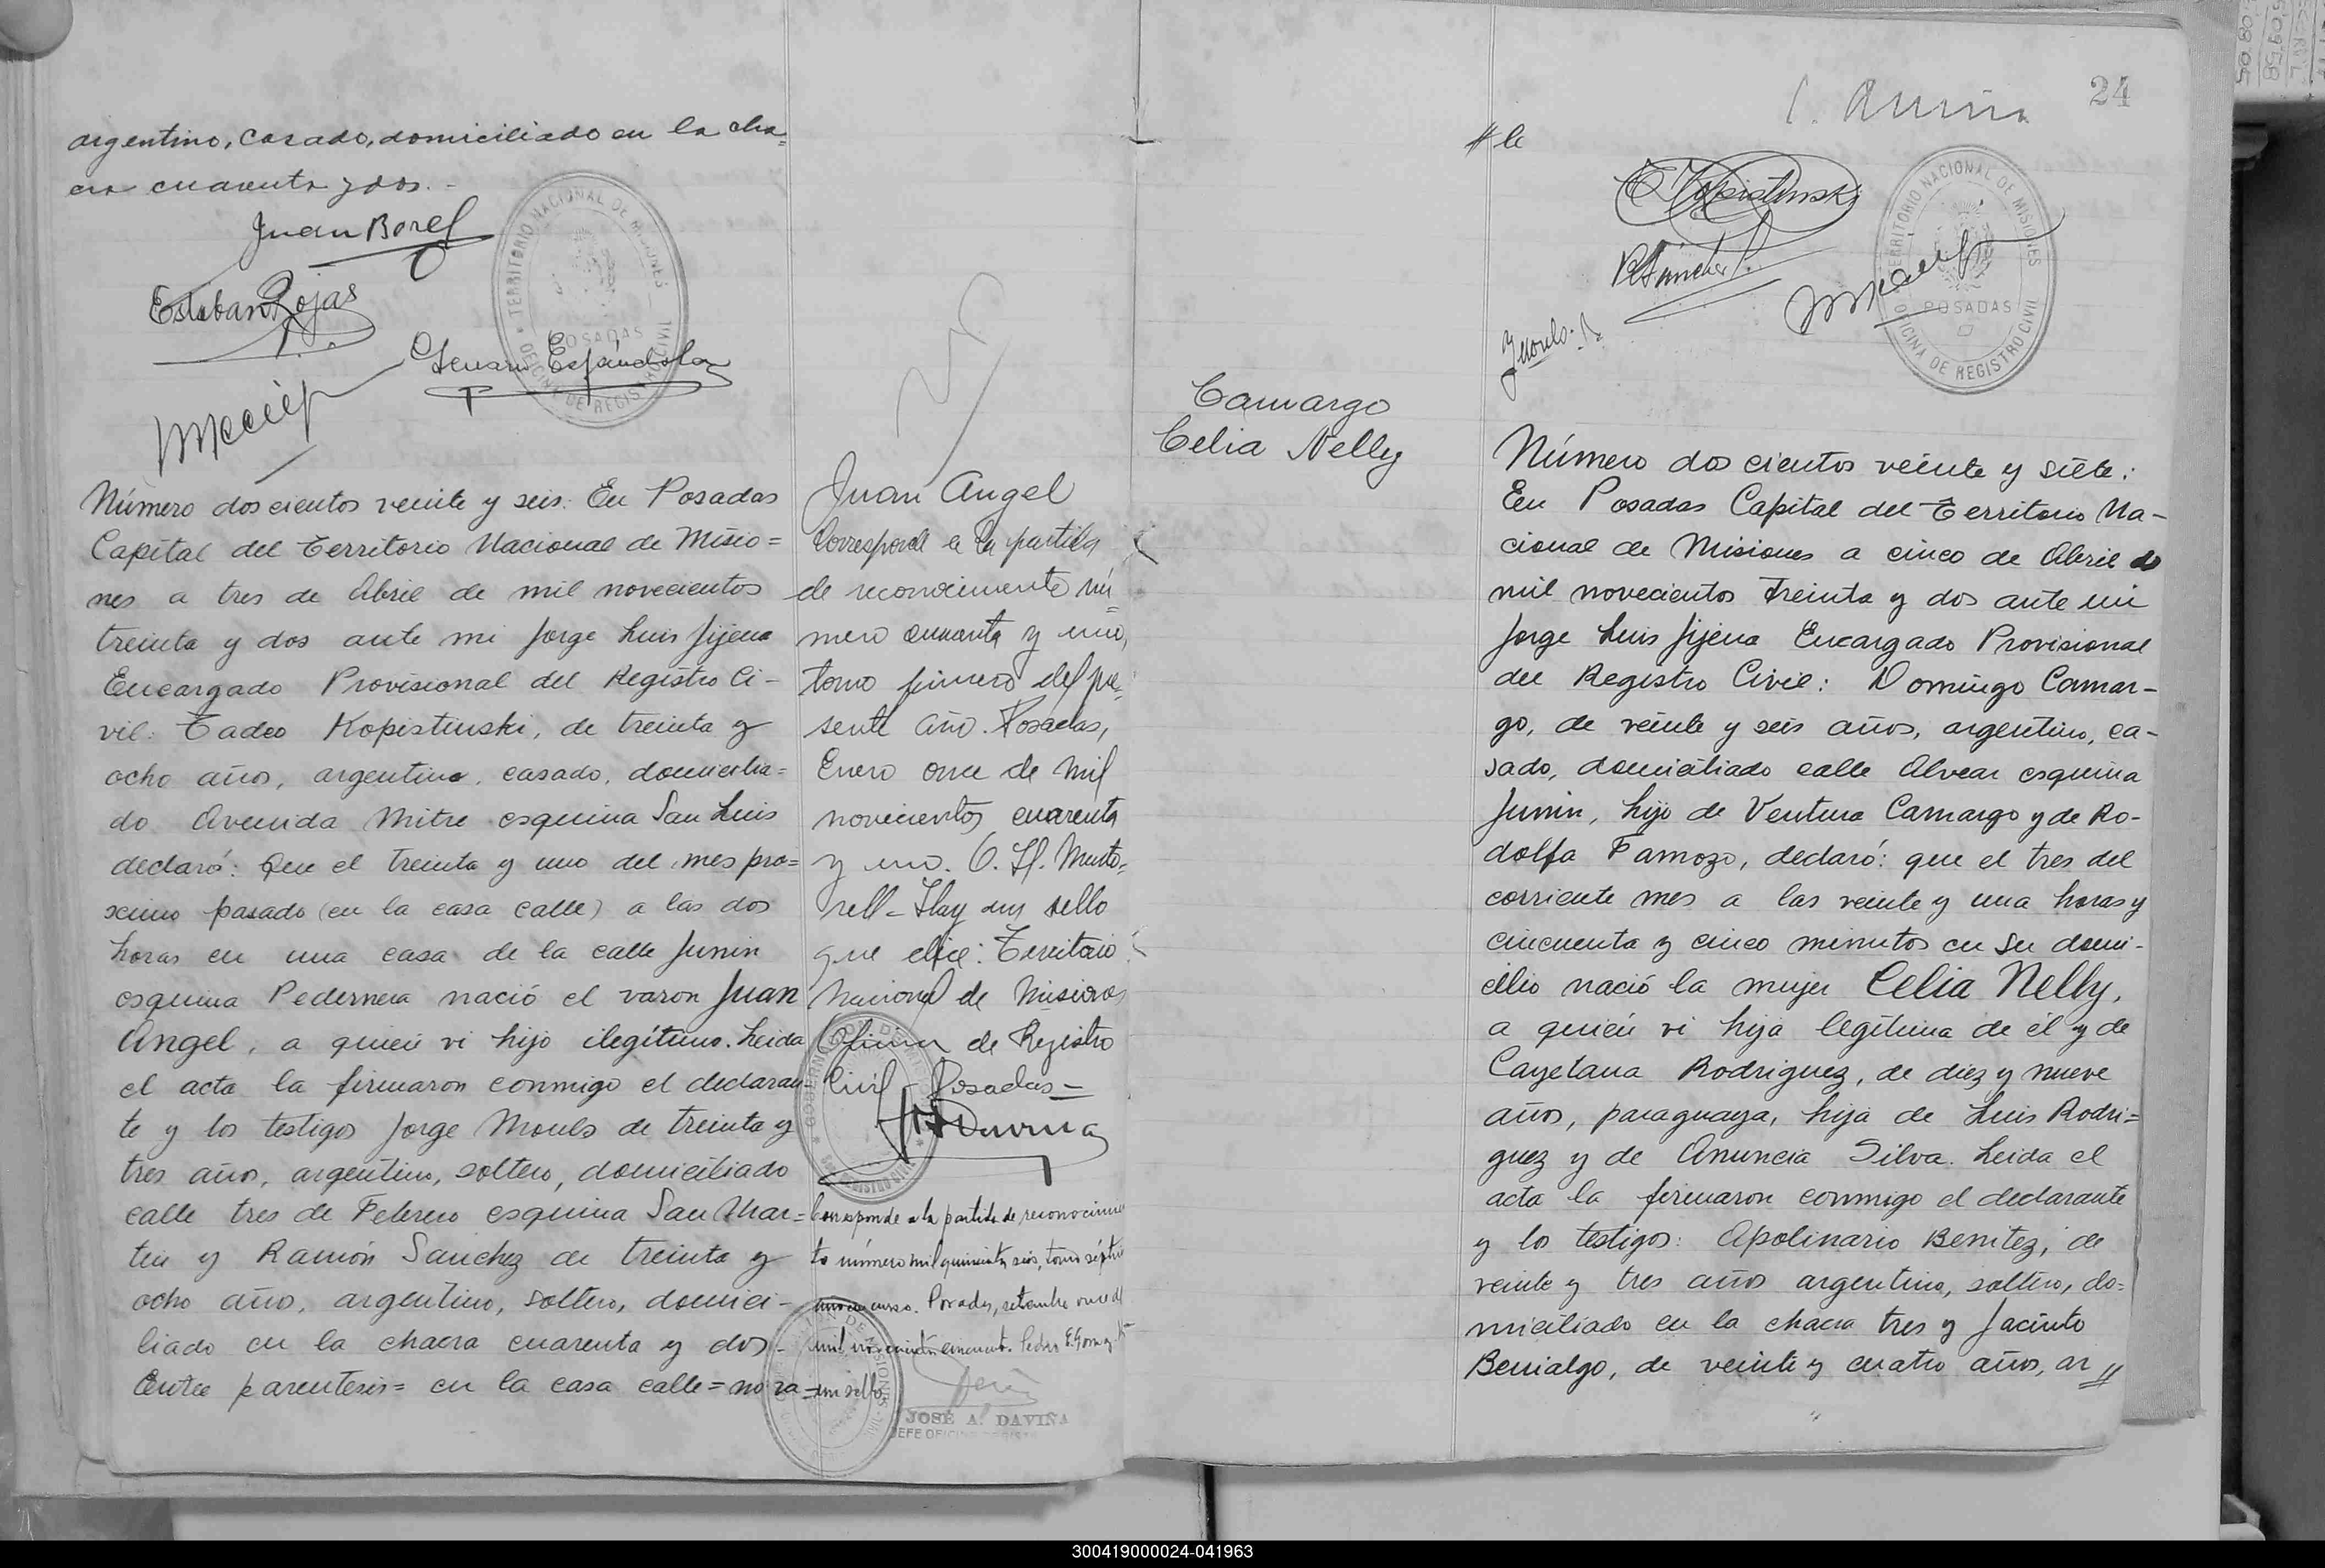 argentino, casado, domiciliado en la cha=
cra cuarenta y dos.-
Juan Borel
Esteban Rojas
TERRITORIO NACIONAL DE MISIONES
POSADAS
OFICINA DE REGISTRO CIVIL
Número dos cientos veinte y seis: En Posadas
Capital del Territorio Nacional de Misio=
nes a tres de Abril de mil novecientos
treinta y dos ante mi Jorge Luis Jijena
Encargado Provisional del Registro Ci-
vil: Tadeo Kopistinski, de treinta y
ocho años, argentino, casado, domicilia=
do Avenida Mitre esquina San Luis
declaró: Que el treinta y uno del mes pro=
ximo pasado (en la casa calle) a las dos
horas en una casa de la calle Junin
esquina Pedernera nació el varon Juan
Angel, a quien vi hijo ilegítimo. Leida
el acta la firmaron conmigo el declaran
te y los testigos Jorge Mouls de treinta y
tres años, argentino, soltero, domiciliado
calle tres de Febrero esquina San Mar=
tin y Ramón Sanchez de treinta y
ocho año, argentino, soltero, domici-
liado en la chacra cuarenta y dos.-
Entre parentesis= en la casa calle= no va=
Juan Angel
Corresponde a la partida
de reconocimiento nú=
mero cuarenta y uno,
tomo primero del pre=
sente año. Posadas,
Enero once de mil
novecientos cuarenta
y uno.
Hay un sello
que dice: Territorio
Nacional de Misiones
Oficina de Registro
Civil - Posadas=
Corresponde a la partida de reconocimien
to número mil quinientos seis, tomo séptimo
año en curso. Posadas, setiembre once de
mil novecientos cincuenta. Pedro E. Gomez.
un sello
JOSÉ A. DAVIÑA
JEFE OFICINA REGISTRO
24
# le
T Kopistinski
R Sanchez
J Mouls
TERRITORIO NACIONAL DE MISIONES
POSADAS
OFICINA DE REGISTRO CIVIL
Camargo
Celia Nelly
Número dos cientos veinte y siete:
En Posadas Capital del Territorio Na-
cional de Misiones a cinco de Abril de
mil novecientos treinta y dos ante mi
Jorge Luis Jijena Encargado Provisional
del Registro Civil: Domingo Camar-
go, de veinte y seis años, argentino, ca-
sado, domiciliado calle Alvear esquina
Junin, hijo de Ventura Camargo y de Ro-
dolfa Famozo, declaró: que el tres del
corriente mes a las veinte y una horas y
cincuenta y cinco minutos en su domi-
cilio nació la mujer Celia Nelly,
a quien vi hija legítima de él y de
Cayetana Rodriguez, de diez y nueve
años, paraguaya, hija de Luis Rodri=
guez y de Anuncia Silva. Leida el
acta la firmaron conmigo el declarante
y los testigos: Apolinario Benitez, de
veinte y tres años argentino, soltero, do=
miciliado en la chacra tres y Jacinto
Benialgo, de veinte y cuatro años, ar//
300419000024-041963